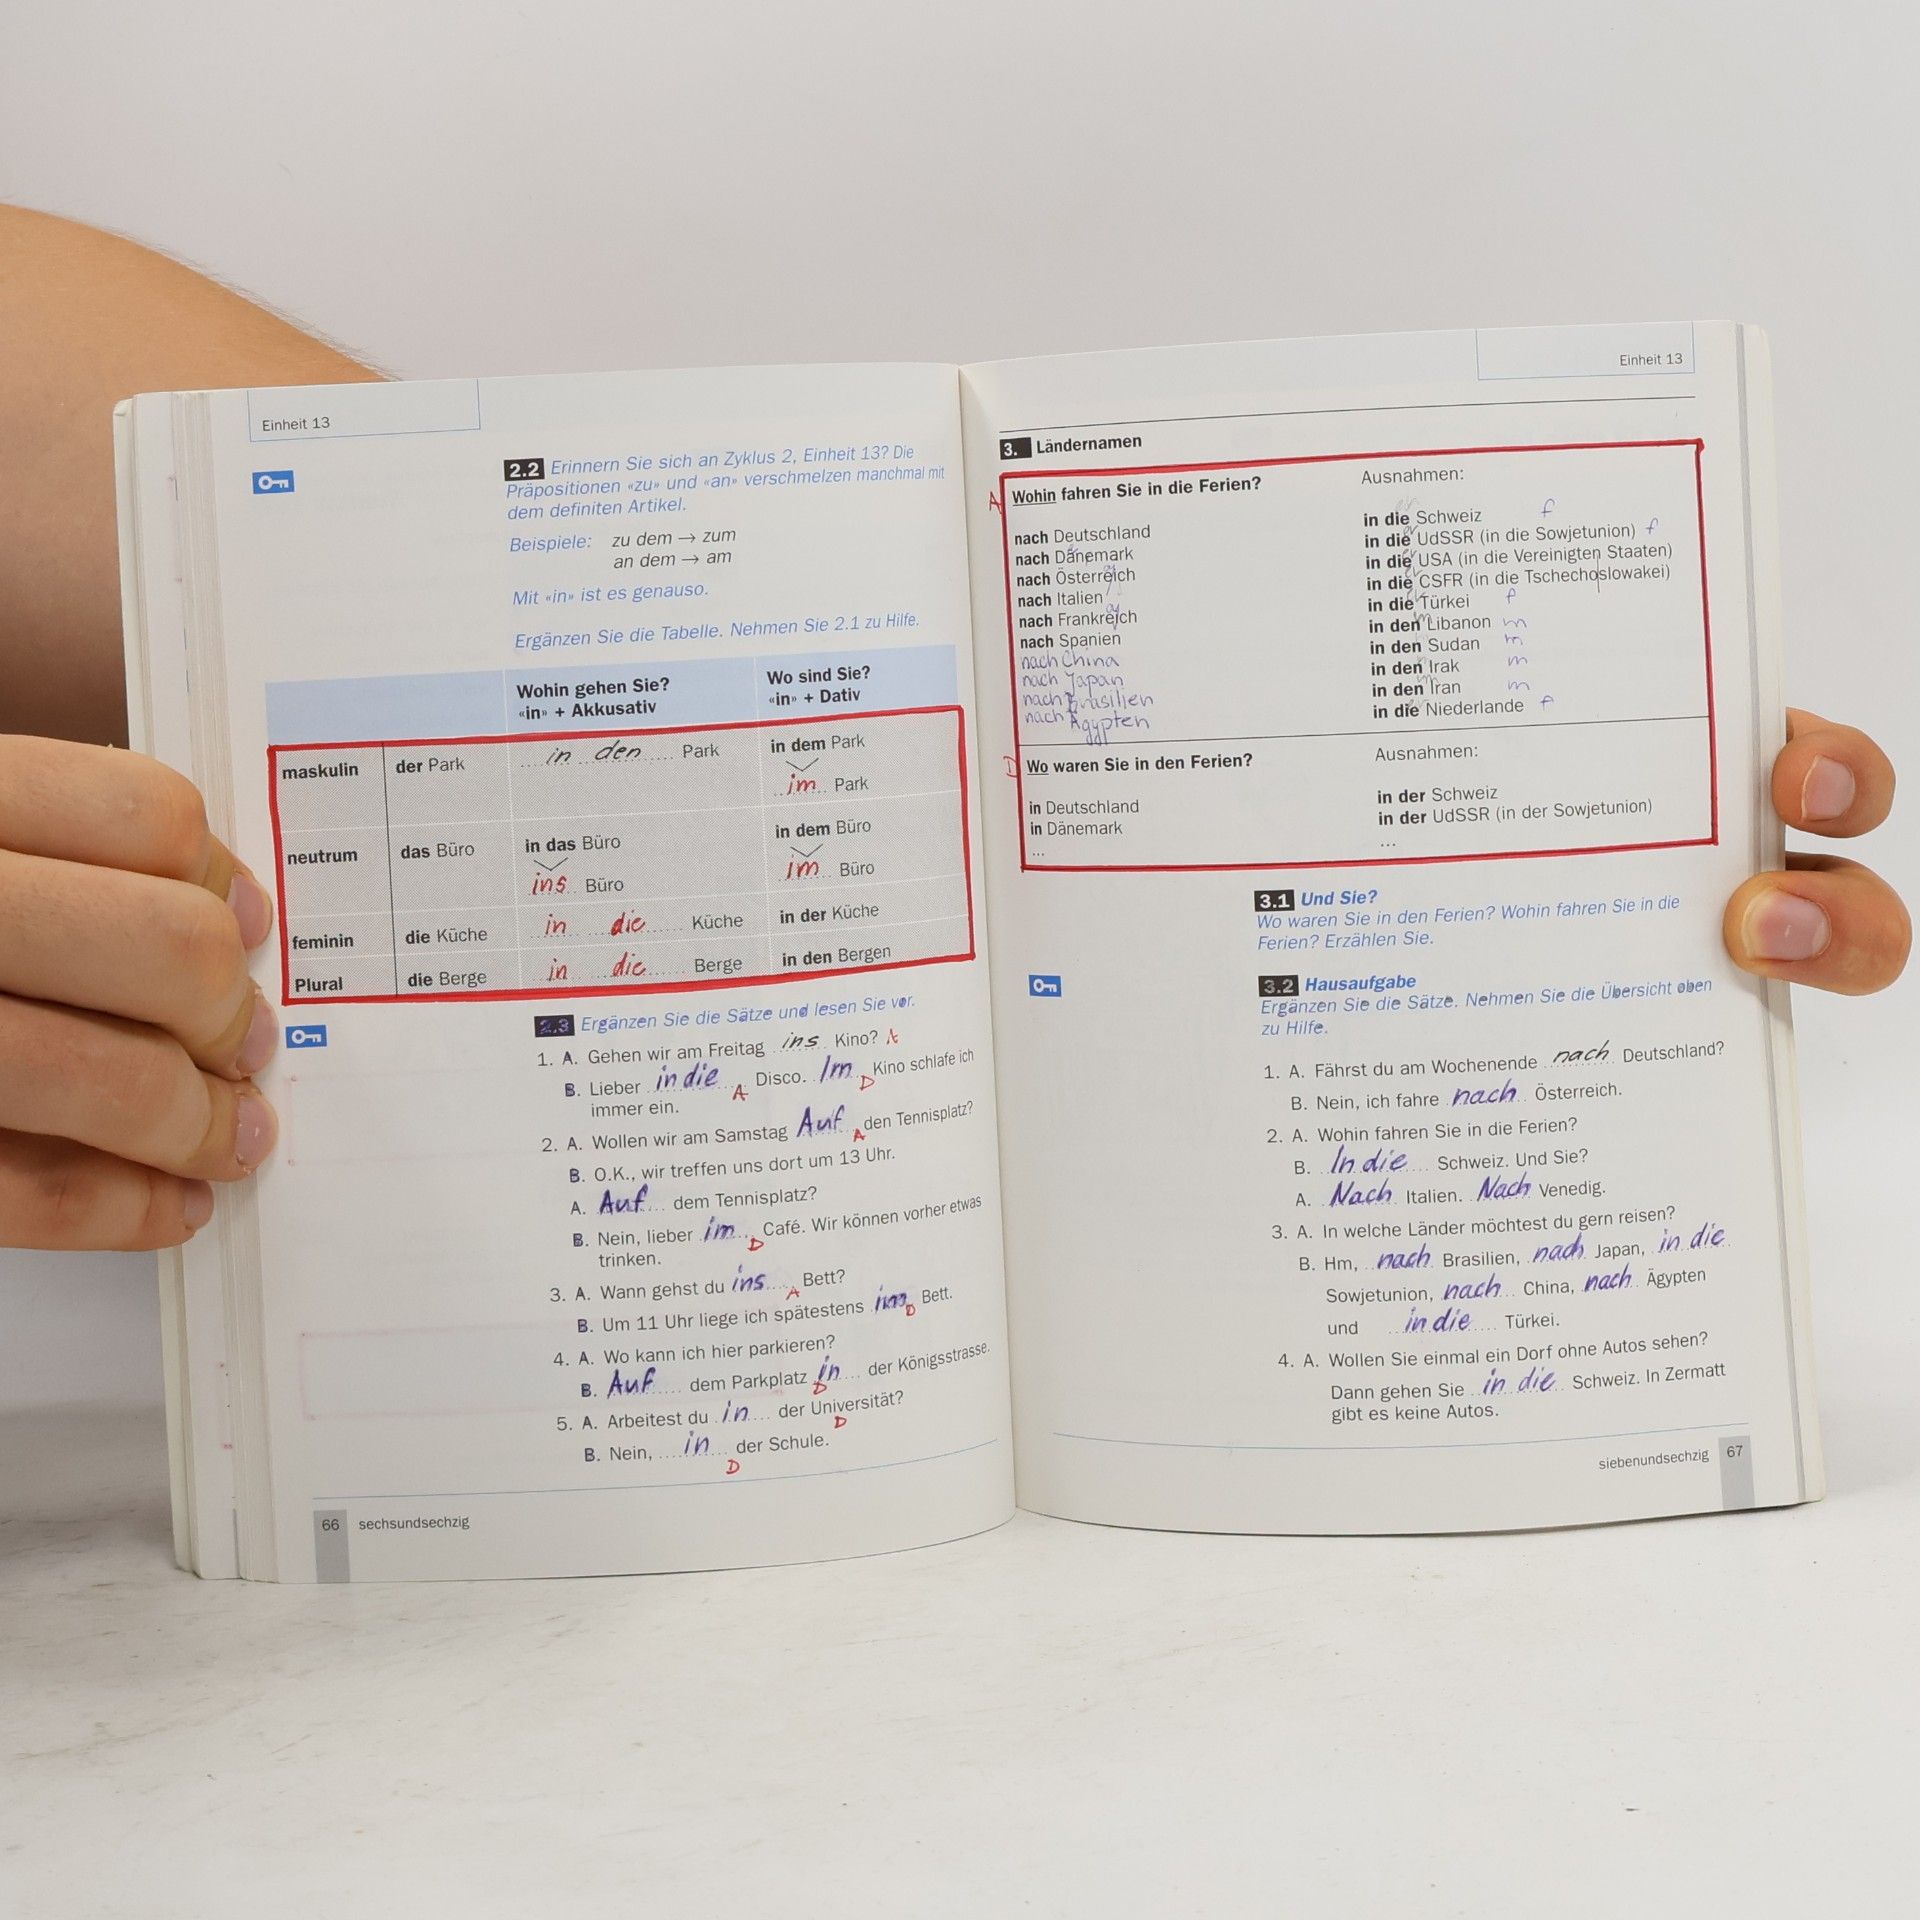 Einheit 13
2.2 Erinnern Sie sich an Zyklus 2, Einheit 13? Die
Präpositionen «zu» und «an» verschmelzen manchmal mit
dem definiten Artikel.
Beispiele: zu dem → zum
an dem → am
Mit «in» ist es genauso.
Ergänzen Sie die Tabelle. Nehmen Sie 2.1 zu Hilfe.
Wohin gehen Sie? Wo sind Sie?
«in» + Akkusativ «in» + Dativ
maskulin der Park in den Park in dem Park
im Park
neutrum das Büro in das Büro in dem Büro
ins Büro im Büro
feminin die Küche in die Küche in der Küche
Plural die Berge in die Berge in den Bergen
2.3 Ergänzen Sie die Sätze und lesen Sie vor.
1. A. Gehen wir am Freitag ins Kino? A
B. Lieber in die A Disco. Im D Kino schlafe ich
immer ein.
2. A. Wollen wir am Samstag Auf A den Tennisplatz?
B. O.K., wir treffen uns dort um 13 Uhr.
A. Auf dem Tennisplatz?
B. Nein, lieber im D Café. Wir können vorher etwas
trinken.
3. A. Wann gehst du ins A Bett?
B. Um 11 Uhr liege ich spätestens im D Bett.
4. A. Wo kann ich hier parkieren?
B. Auf dem Parkplatz in D der Königsstrasse.
5. A. Arbeitest du in der Universität? D
B. Nein, in D der Schule.
66 sechsundsechzig
Einheit 13
3. Ländernamen
A Wohin fahren Sie in die Ferien? Ausnahmen:
nach Deutschland in die Schweiz f
nach Dänemark in die UdSSR (in die Sowjetunion) f
nach Österreich in die USA (in die Vereinigten Staaten)
nach Italien in die CSFR (in die Tschechoslowakei)
nach Frankreich in die Türkei f
nach Spanien in den Libanon m
nach China in den Sudan m
nach Japan in den Irak m
nach Brasilien in den Iran m
nach Ägypten in die Niederlande f
D Wo waren Sie in den Ferien? Ausnahmen:
in Deutschland in der Schweiz
in Dänemark in der UdSSR (in der Sowjetunion)
... ...
3.1 Und Sie?
Wo waren Sie in den Ferien? Wohin fahren Sie in die
Ferien? Erzählen Sie.
3.2 Hausaufgabe
Ergänzen Sie die Sätze. Nehmen Sie die Übersicht oben
zu Hilfe.
1. A. Fährst du am Wochenende nach Deutschland?
B. Nein, ich fahre nach Österreich.
2. A. Wohin fahren Sie in die Ferien?
B. In die Schweiz. Und Sie?
A. Nach Italien. Nach Venedig.
3. A. In welche Länder möchtest du gern reisen?
B. Hm, nach Brasilien, nach Japan, in die
Sowjetunion, nach China, nach Ägypten
und in die Türkei.
4. A. Wollen Sie einmal ein Dorf ohne Autos sehen?
Dann gehen Sie in die Schweiz. In Zermatt
gibt es keine Autos.
siebenundsechzig 67